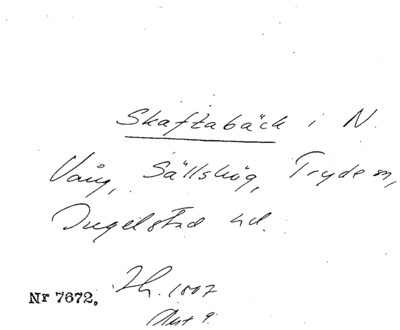 Skaftabäck i N.
Vång, Sällshög, Tryde sn,
Ingelstad hd.
Nr 7672. Zh. 1807
Akt 9.